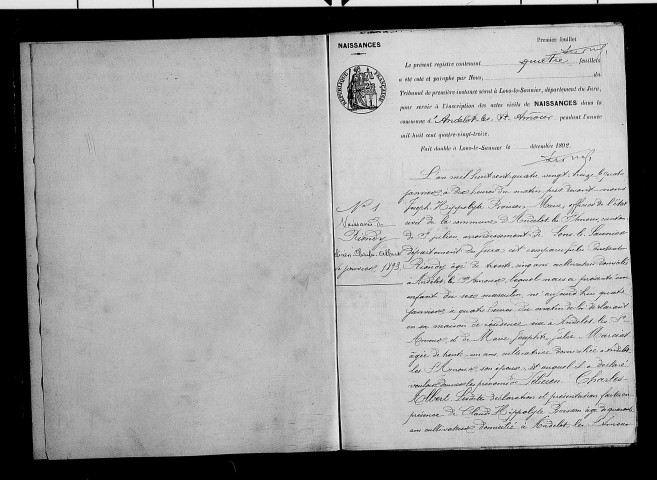 NAISSANCES
Premier feuillet
Le présent registre contenant quatre feuillets
a été coté et paraphé par Nous, du
Tribunal de première instance séant à Lons-le-Saunier, département du Jura,
pour servir à l'inscription des actes civils de NAISSANCES dans la
commune d'Andelot-les-St-Amour pendant l'année
mil huit cent quatre-vingt-treize.
Fait double à Lons-le-Saunier le décembre 1892
RÉPUBLIQUE FRANÇAISE
N° 1
Naissance de
Riondy
Charles Albert
4 janvier 1893
L'an mil huit cent quatre vingt treize le quatre
janvier à dix heures du matin, par devant nous
Joseph Hippolyte Maire, officier de l'état
civil de la commune d'Andelot les St Amour, canton
de St Julien, arrondissement de Lons le Saunier
département du Jura est comparu
Riondy âgé de trente cinq ans cultivateur domicilié
à Andelot les St Amour, lequel nous a présenté un
enfant du sexe masculin né aujourd'hui quatre
janvier à quatre heures du matin de lui déclarant
en sa maison de résidence sise à Andelot les St
Amour, et de Marie Joséphte
âgée de trente un ans, cultivatrice domiciliée à Andelot
les St Amour son épouse, et auquel il a déclaré
vouloir donner les prénoms de Charles
Albert. Lesdites déclaration et présentation faites en
présence de Claude Hippolyte âgé de quarante
ans cultivateur domicilié à Andelot les St Amour